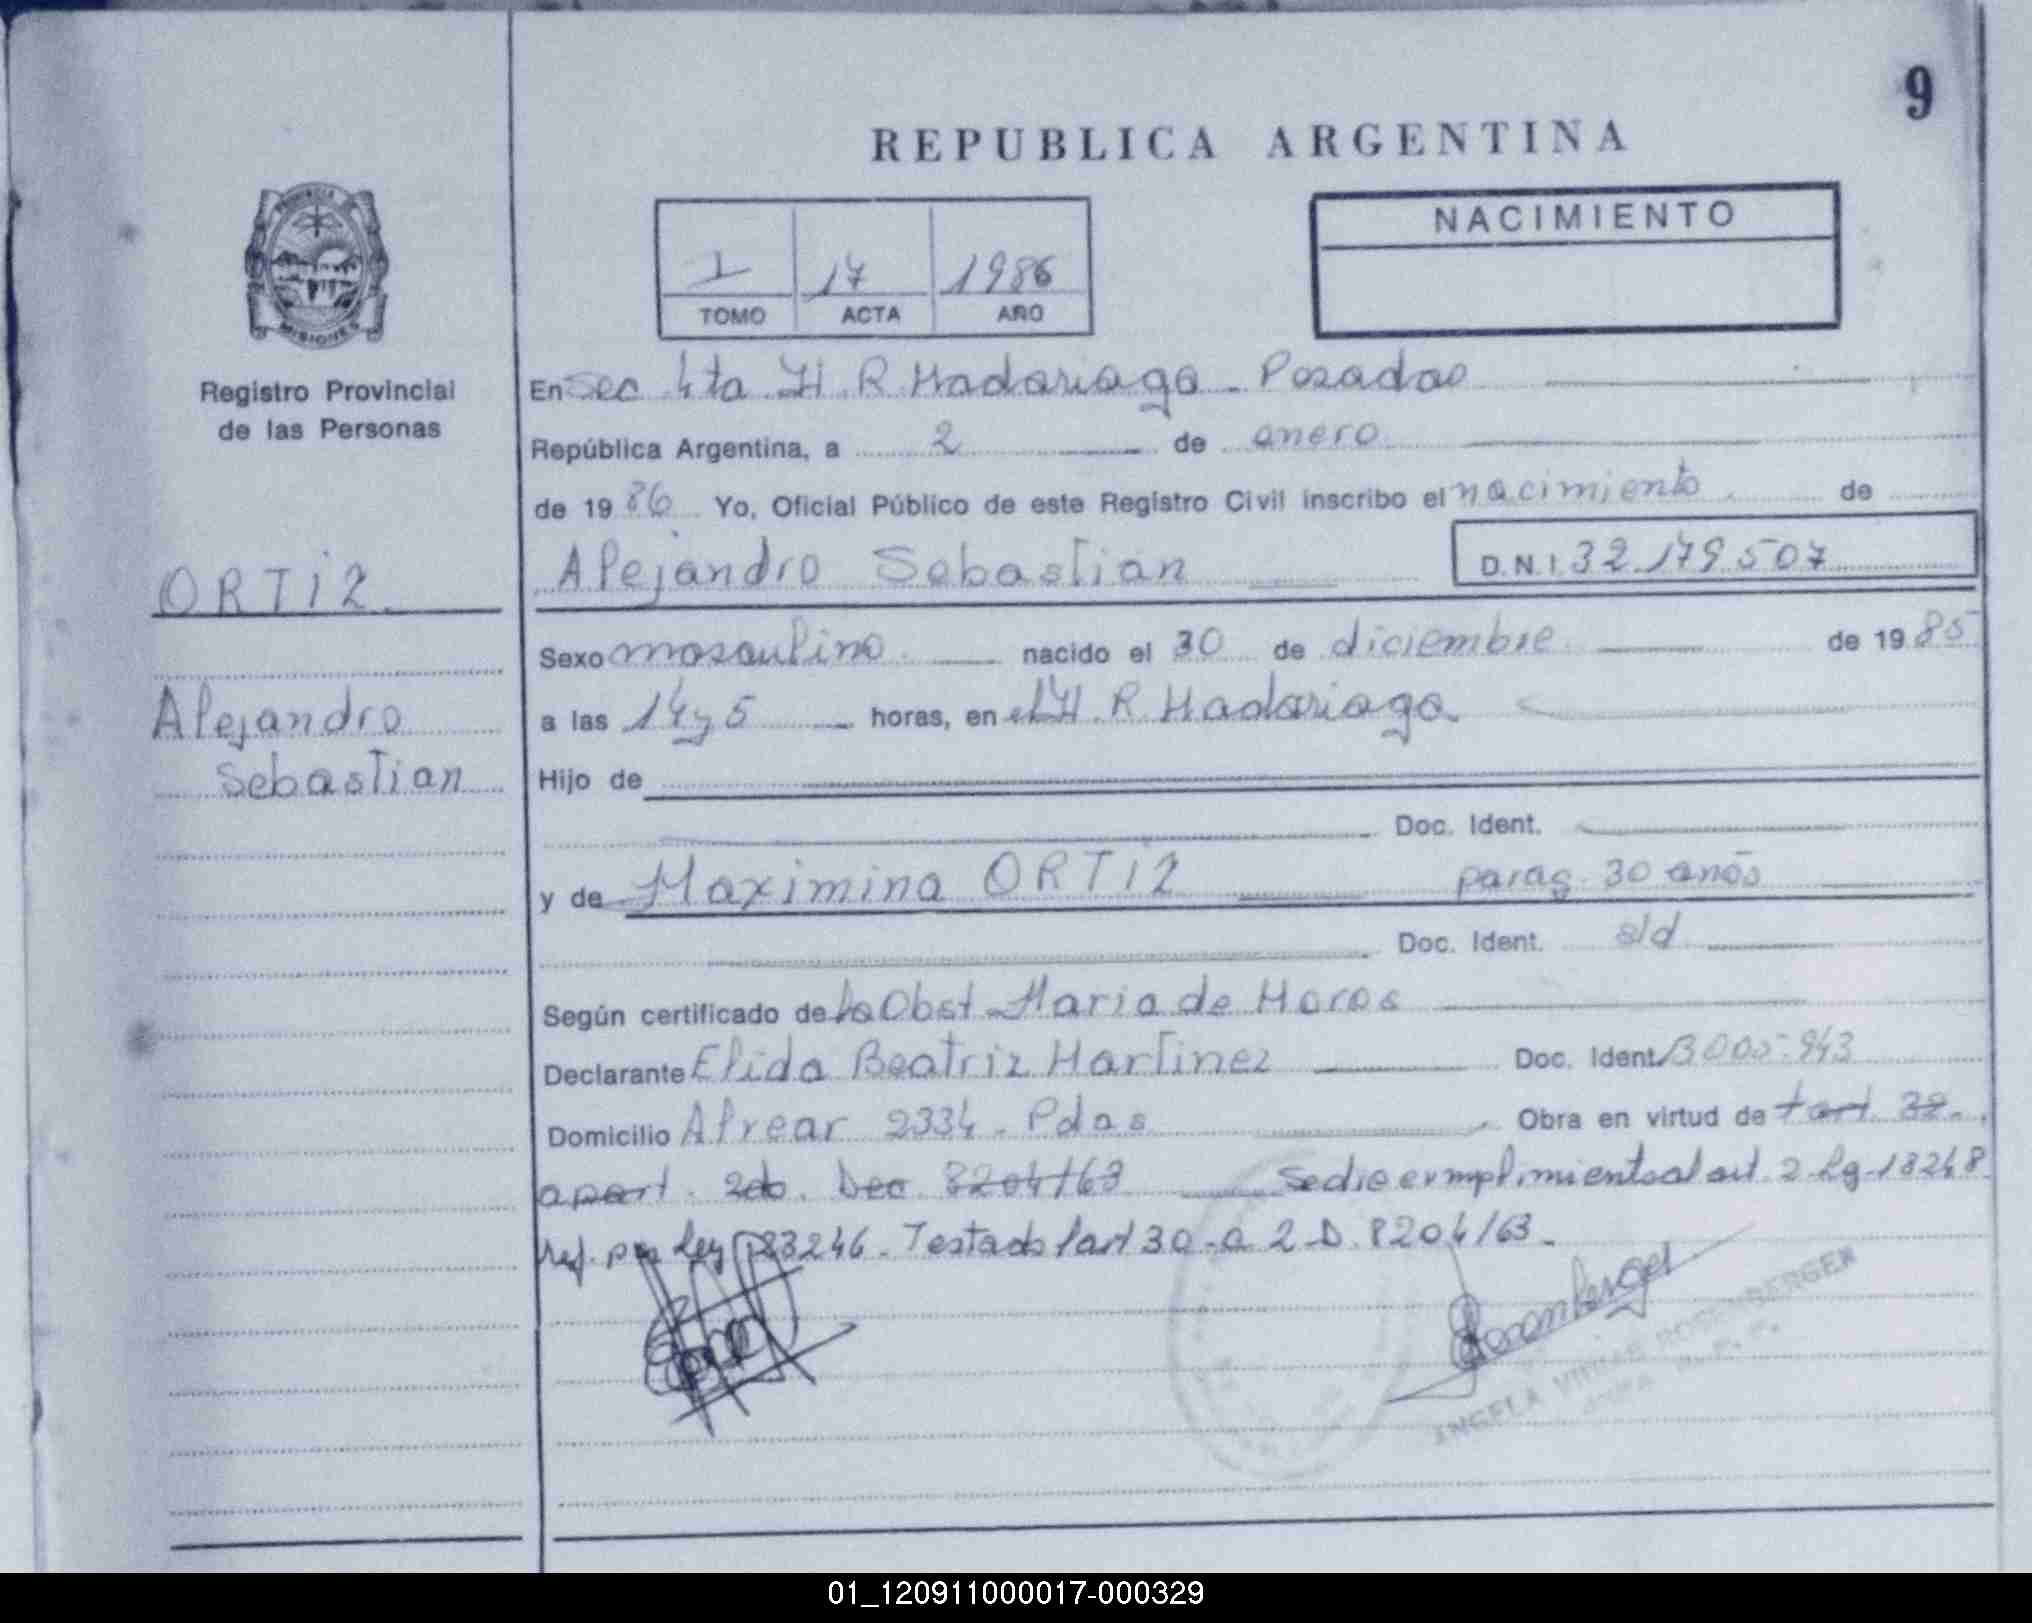 9
REPUBLICA ARGENTINA
PROVINCIA
MISIONES
Registro Provincial
de las Personas
I 17 1986
TOMO ACTA AÑO
NACIMIENTO
En Sec 4ta H. R. Madariaga - Posadas
República Argentina, a 2 de enero
de 1986 Yo, Oficial Público de este Registro Civil inscribo el nacimiento de
Alejandro Sebastian D.N.I. 32.179.507
ORTIZ
Sexo masculino nacido el 30 de diciembre de 1985
Alejandro
Sebastian
a las 14 y 5 horas, en el H. R. Madariaga
Hijo de
Doc. Ident.
y de Maximina ORTIZ parag. 30 años
Doc. Ident. s/d
Según certificado de la Obst. Maria de
Declarante Elida Beatriz Martinez Doc. Ident.
Domicilio Alvear 2334 - Pdas Obra en virtud de
apart. 2do. Dec 8204/63 Se dio cumplimiento al art. 2 18248
Ref. por Ley Testado 30 - a 2 D. 8204/63
ROSEMBERGEN
01_120911000017-000329